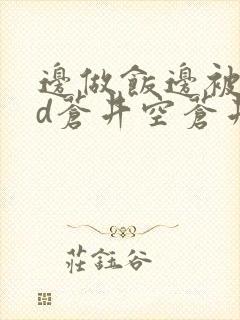 邊做飯邊被
d蒼井空蒼井
莊鈺谷